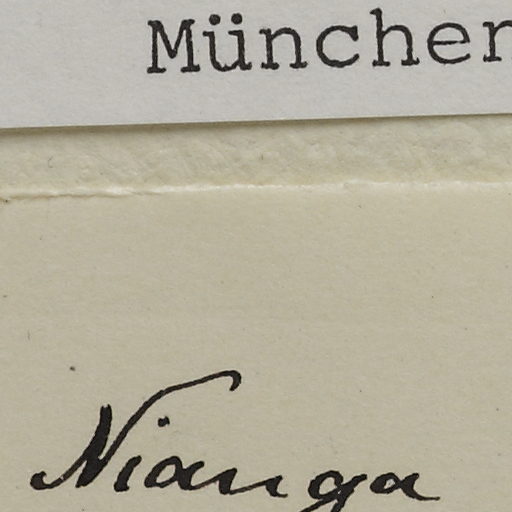 München
Nianga